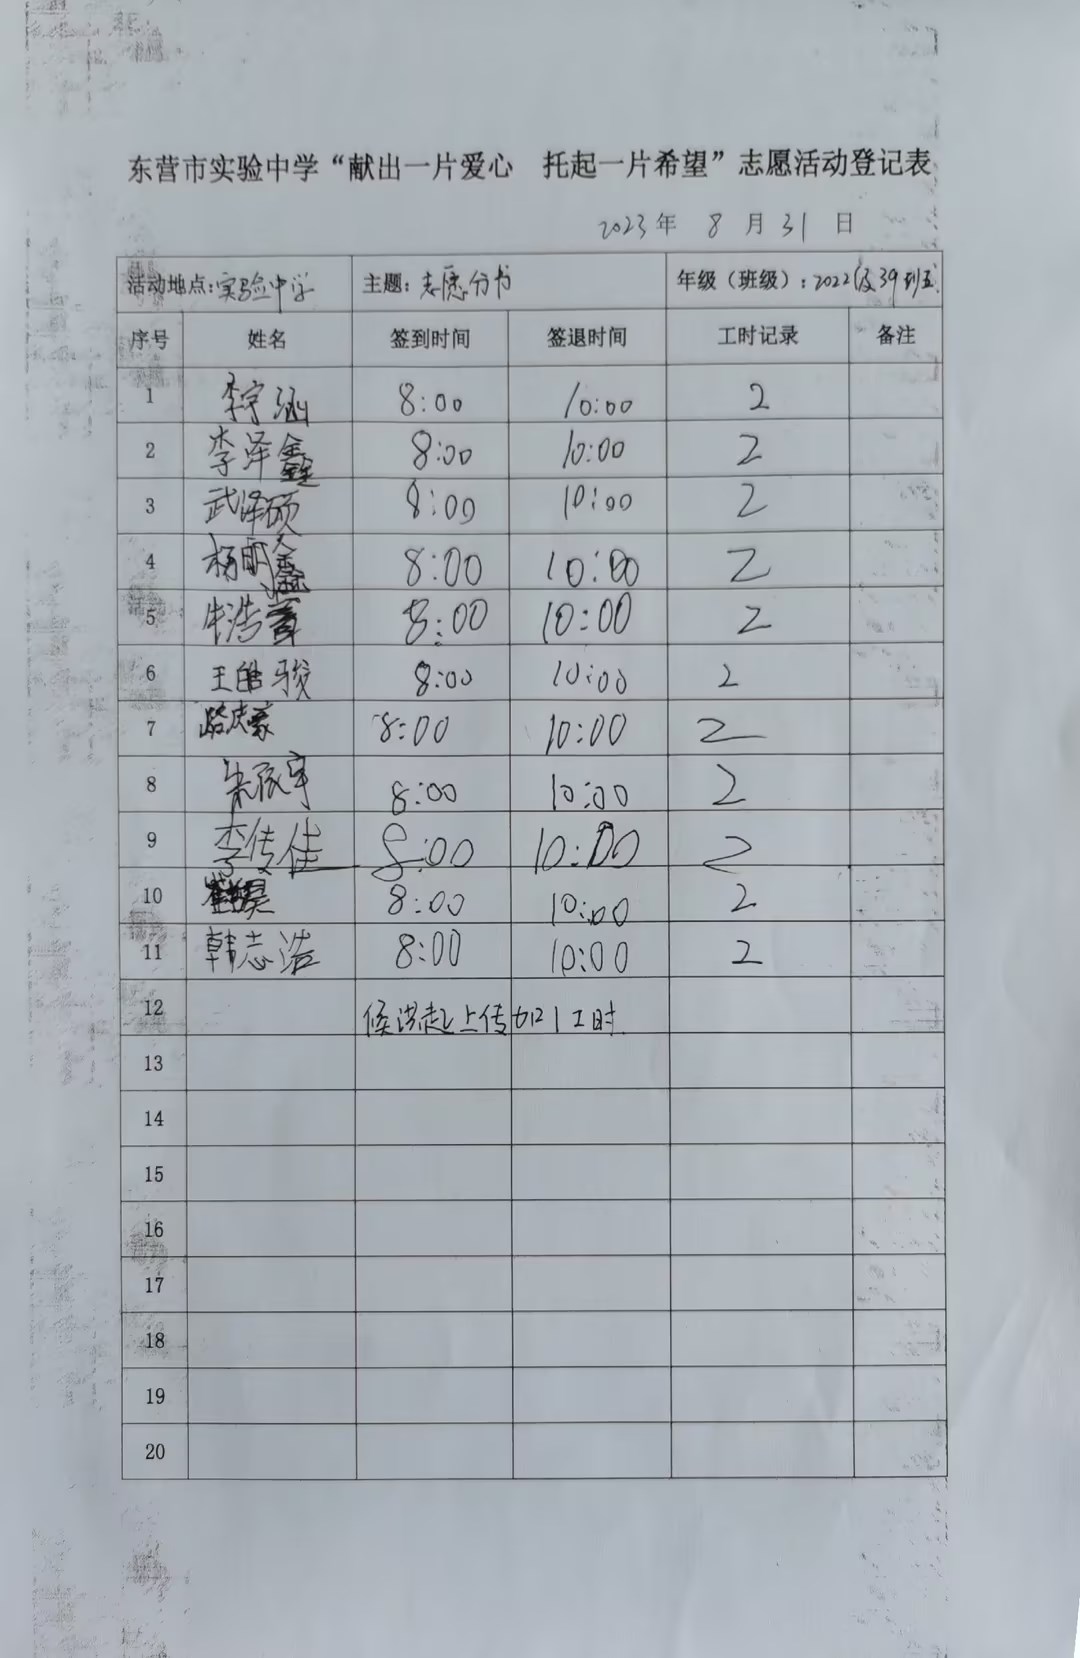 东营市实验中学“献出一片爱心 托起一片希望”志愿活动登记表
2023年 8 月 31 日
活动地点:实验中学 主题:志愿分书 年级（班级）:2022级39班
序号 姓名 签到时间 签退时间 工时记录 备注
1 李宇涵 8:00 10:00 2
2 李泽鑫 8:00 10:00 2
3 武泽硕 8:00 10:00 2
4 杨明鑫 8:00 10:00 2
5 浩 8:00 10:00 2
6 王皓骏 8:00 10:00 2
7 8:00 10:00 2
8 朱宸宇 8:00 10:00 2
9 李传佳 8:00 10:00 2
10 8:00 10:00 2
11 韩志浩 8:00 10:00 2
12 侯洪起上传加1工时
13
14
15
16
17
18
19
20